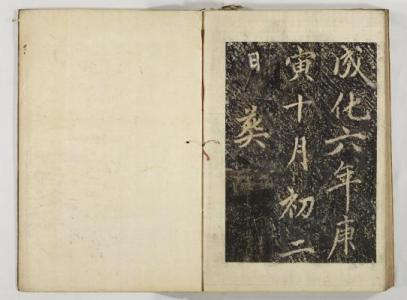 成化六年庚
寅十月初二
日英